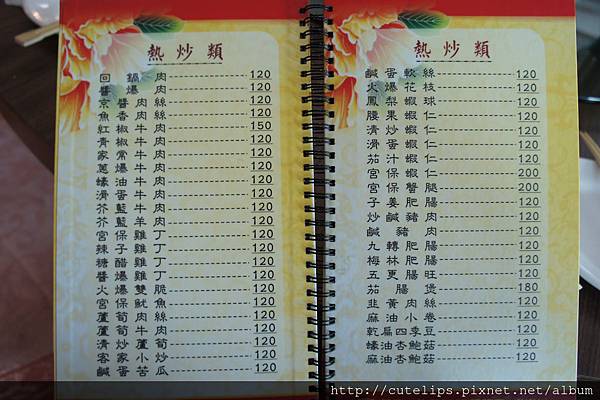 熱炒類
回鍋肉 120
醬爆肉 120
京醬肉絲 120
魚香肉絲 120
紅椒牛肉 150
青椒牛肉 120
家常牛肉 120
蔥爆牛肉 120
蠔油牛肉 120
滑蛋牛肉 120
芥藍牛肉 120
芥藍羊肉 120
宮保雞丁 120
辣子雞丁 120
糖醋雞丁 120
醬爆雞丁 120
火爆雙脆 120
宮保魷魚 120
蘆筍肉絲 120
蘆筍牛肉 120
清炒蘆筍 120
客家小炒 120
鹹蛋苦瓜 120
熱炒類
鹹蛋軟絲 120
火爆花枝 120
鳳梨蝦球 120
腰果蝦仁 120
清炒蝦仁 120
滑蛋蝦仁 120
茄汁蝦仁 120
宮保蝦仁 200
宮保蟹腿 200
子薑肥腸 120
炒鹹豬肉 120
鹹豬肉 120
九轉肥腸 120
梅林肥腸 120
五更腸旺 120
茄腸煲 180
韭黃肉絲 120
麻油小卷 120
乾扁四季豆 120
蠔油杏鮑菇 120
麻油杏鮑菇 120
http://cutelips.pixnet.net/album